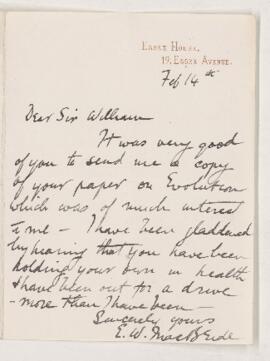 19, Essex Avenue.
Feb 14th
Dear Sir William
It was very good
of you to send me a copy
of your paper on Evolution
which was of much interest
to me – I have been gladdened
by hearing that you have been
holding your own in health
& have been out for a drive
– more than I have been –
Sincerely yours
E. W. MacBride